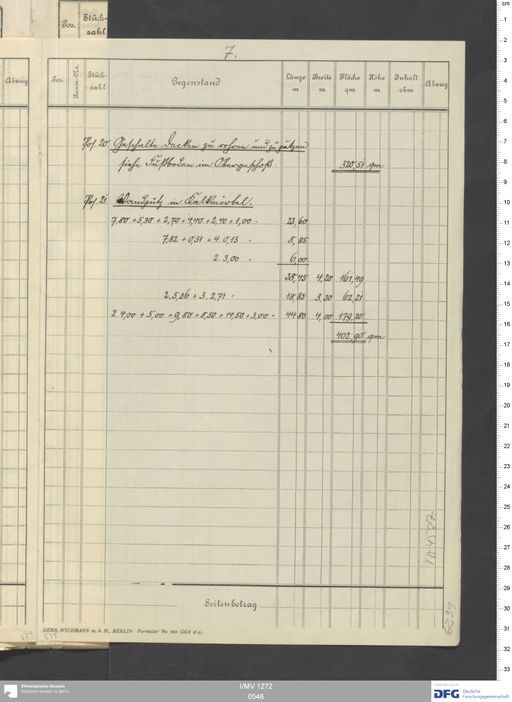 Pos.
Stück-
zahl
7.
Abzug
Pos.
Stück-
zahl
Gegenstand
Länge
m
Breite
m
Fläche
qm
Höhe
m
Inhalt
cbm
Abzug
Pos. 20 Geschalte Decken zu rohren und zu putzen
siehe Fußboden im Obergeschoß 320,51 qm
Pos. 21 Wandputz in Kalkmörtel.
7,80 + 5,30 + 2,70 + 4,40 + 2,40 + 1,00 = 23,60
7,82 + 0,51 + 4. 0,13 = 8,85
2. 3,00 = 6,00
38,45 4,20 161,49
2. 5,36 + 3. 2,71 = 18,85 3,30 62,21
2. 4,00 + 5,00 + 9,80 + 8,50 + 14,50 + 3,00 = 44,80 4,00 179,20
402,90 qm
Seitenbetrag
GEBR. WICHMANN m. b. H., BERLIN. Formular No.
Ethnologisches Museum
Staatliche Museen zu Berlin
I/MV 1272
0546
DFG Deutsche
Forschungsgemeinschaft